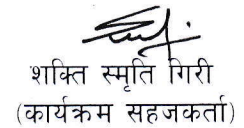 शक्ति स्मृति गिरी
(कार्यक्रम सहजकर्ता)